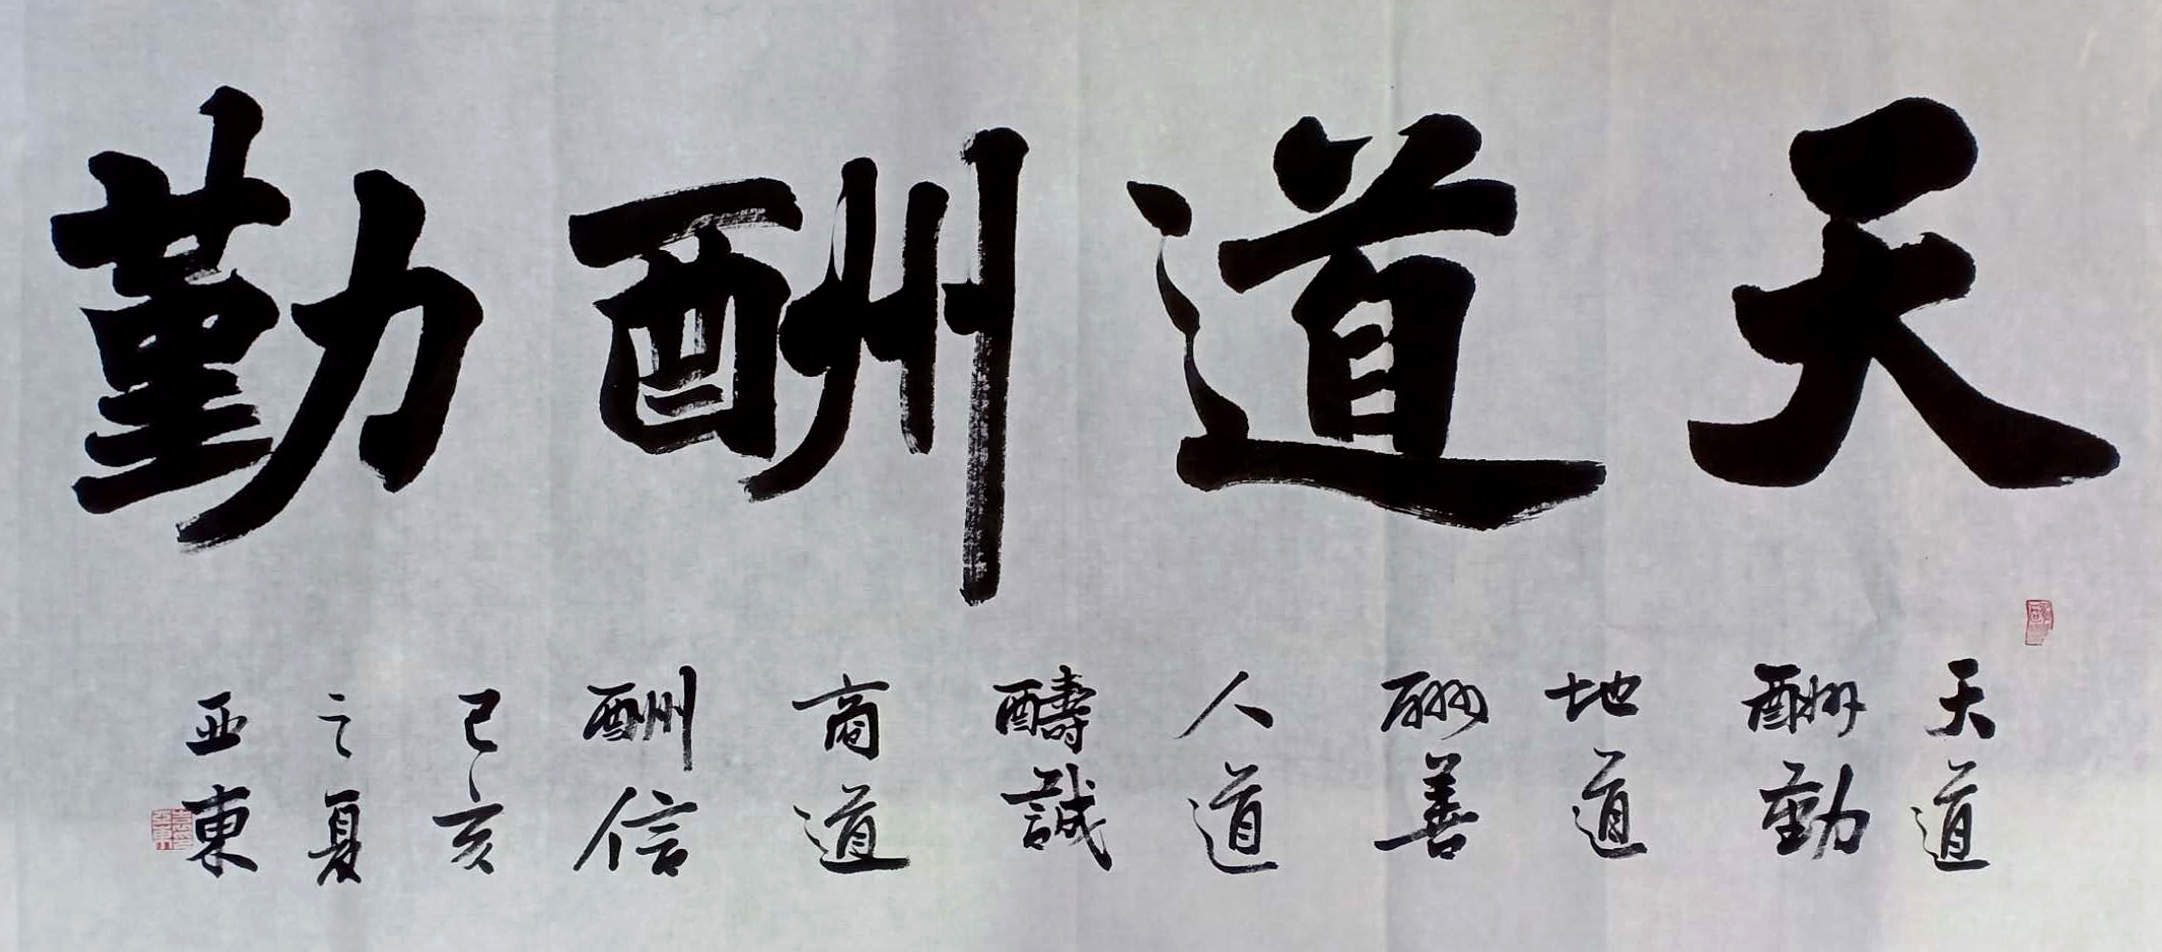 天道酬勤
天道
酬勤
地道
酬善
人道
醻誠
商道
酬信
己亥
之夏
亚東